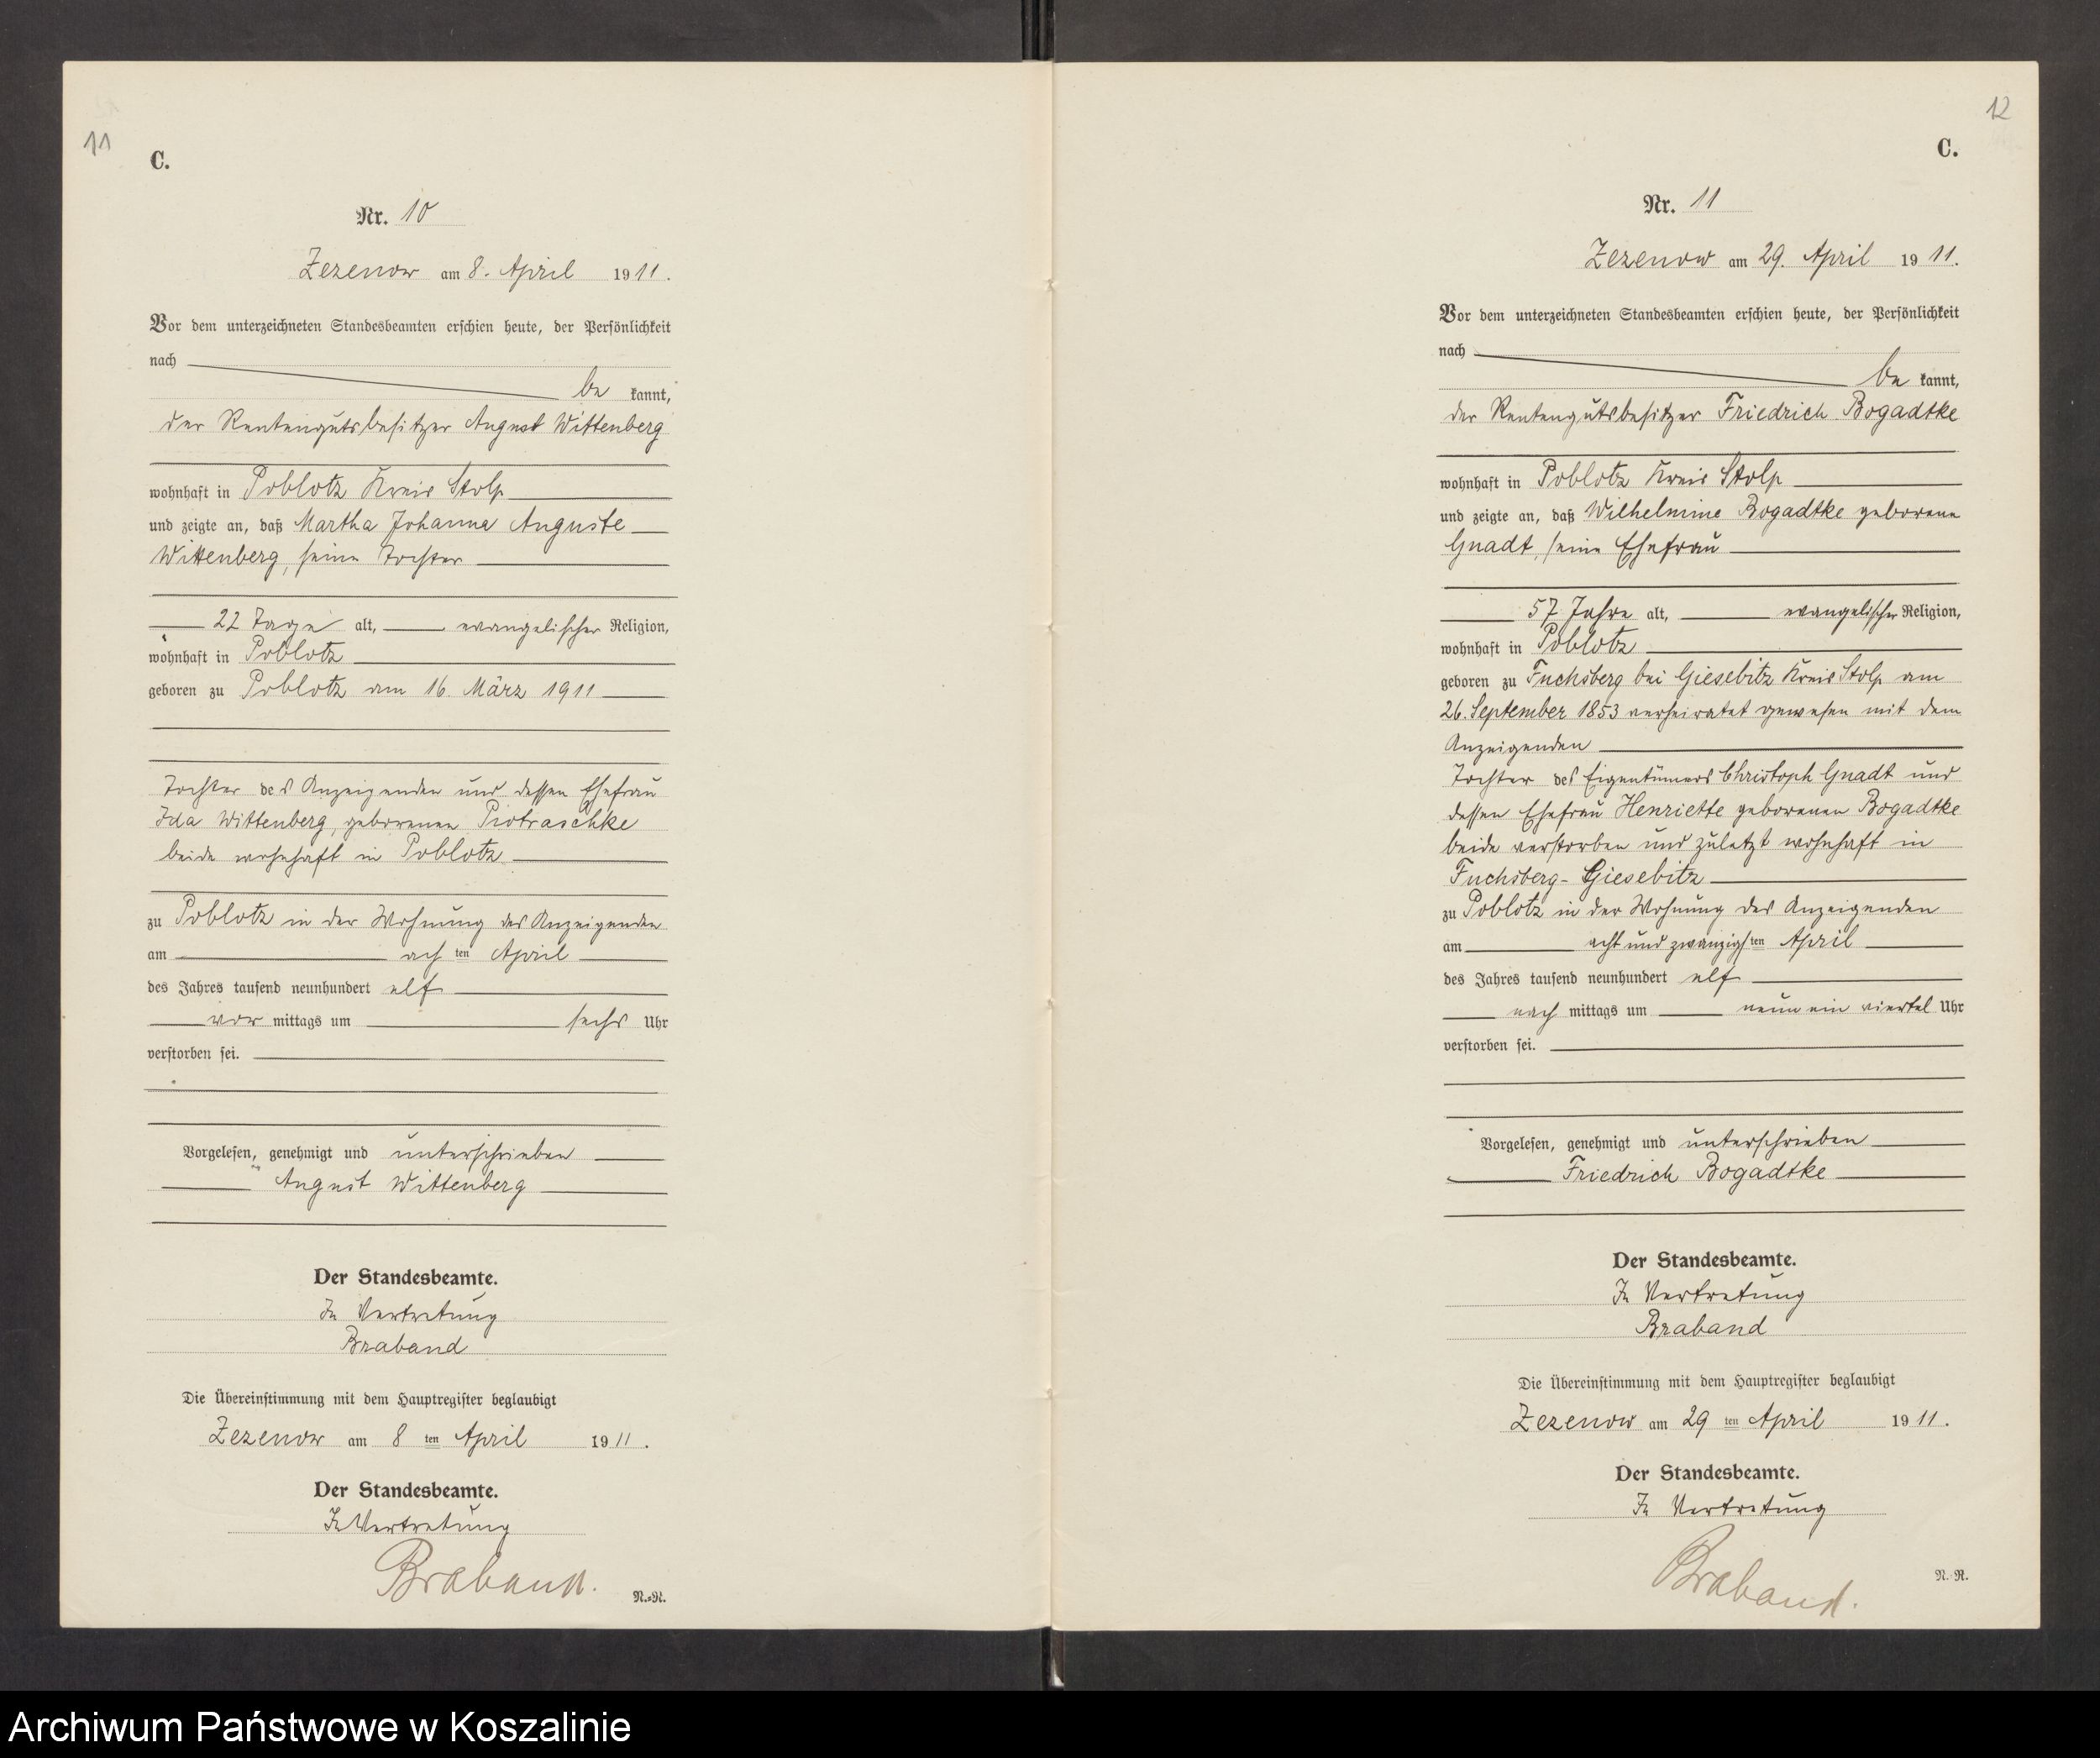 11
C.
Nr. 10
Zezenow am 8. April 1911.
Vor dem unterzeichneten Standesbeamten erschien heute, der Persönlichkeit
nach
be kannt,
der Rentengutsbesitzer August Wittenberg
wohnhaft in Poblotz Kreis Stolp
und zeigte an, daß Martha Johanna Auguste
Wittenberg, seine Tochter
22 Tage alt, evangelischer Religion,
wohnhaft in Poblotz
geboren zu Poblotz am 16. März 1911
Tochter des Anzeigenden und dessen Ehefrau
Ida Wittenberg, geborenen Piotraschke
beide wohnhaft in Poblotz
zu Poblotz in der Wohnung des Anzeigenden
am ach ten April
des Jahres tausend neunhundert elf
vor mittags um sechs Uhr
verstorben sei.
Vorgelesen, genehmigt und unterschrieben
August Wittenberg
Der Standesbeamte.
In Vertretung
Braband
Die Übereinstimmung mit dem Hauptregister beglaubigt
Zezenow am 8 ten April 1911.
Der Standesbeamte.
In Vertretung
Braband.
N.=R.
12
C.
Nr. 11
Zezenow am 29. April 1911.
Vor dem unterzeichneten Standesbeamten erschien heute, der Persönlichkeit
nach
be kannt,
der Rentengutsbesitzer Friedrich Bogadtke
wohnhaft in Poblotz Kreis Stolp
und zeigte an, daß Wilhelmine Bogadtke geborene
Gnadt, seine Ehefrau
57 Jahre alt, evangelischer Religion,
wohnhaft in Poblotz
geboren zu Fuchsberg bei Giesebitz Kreis Stolp am
26. September 1853 verheiratet gewesen mit dem
Anzeigenden
Tochter des Eigentümers Christoph Gnadt und
dessen Ehefrau Henriette geborenen Bogadtke
beide verstorben und zuletzt wohnhaft in
Fuchsberg-Giesebitz
zu Poblotz in der Wohnung des Anzeigenden
am acht und zwanzigsten April
des Jahres tausend neunhundert elf
nach mittags um neun ein viertel Uhr
verstorben sei.
Vorgelesen, genehmigt und unterschrieben
Friedrich Bogadtke
Der Standesbeamte.
In Vertretung
Braband
Die Übereinstimmung mit dem Hauptregister beglaubigt
Zezenow am 29 ten April 1911.
Der Standesbeamte.
In Vertretung
Braband.
N.-R.
Archiwum Państwowe w Koszalinie